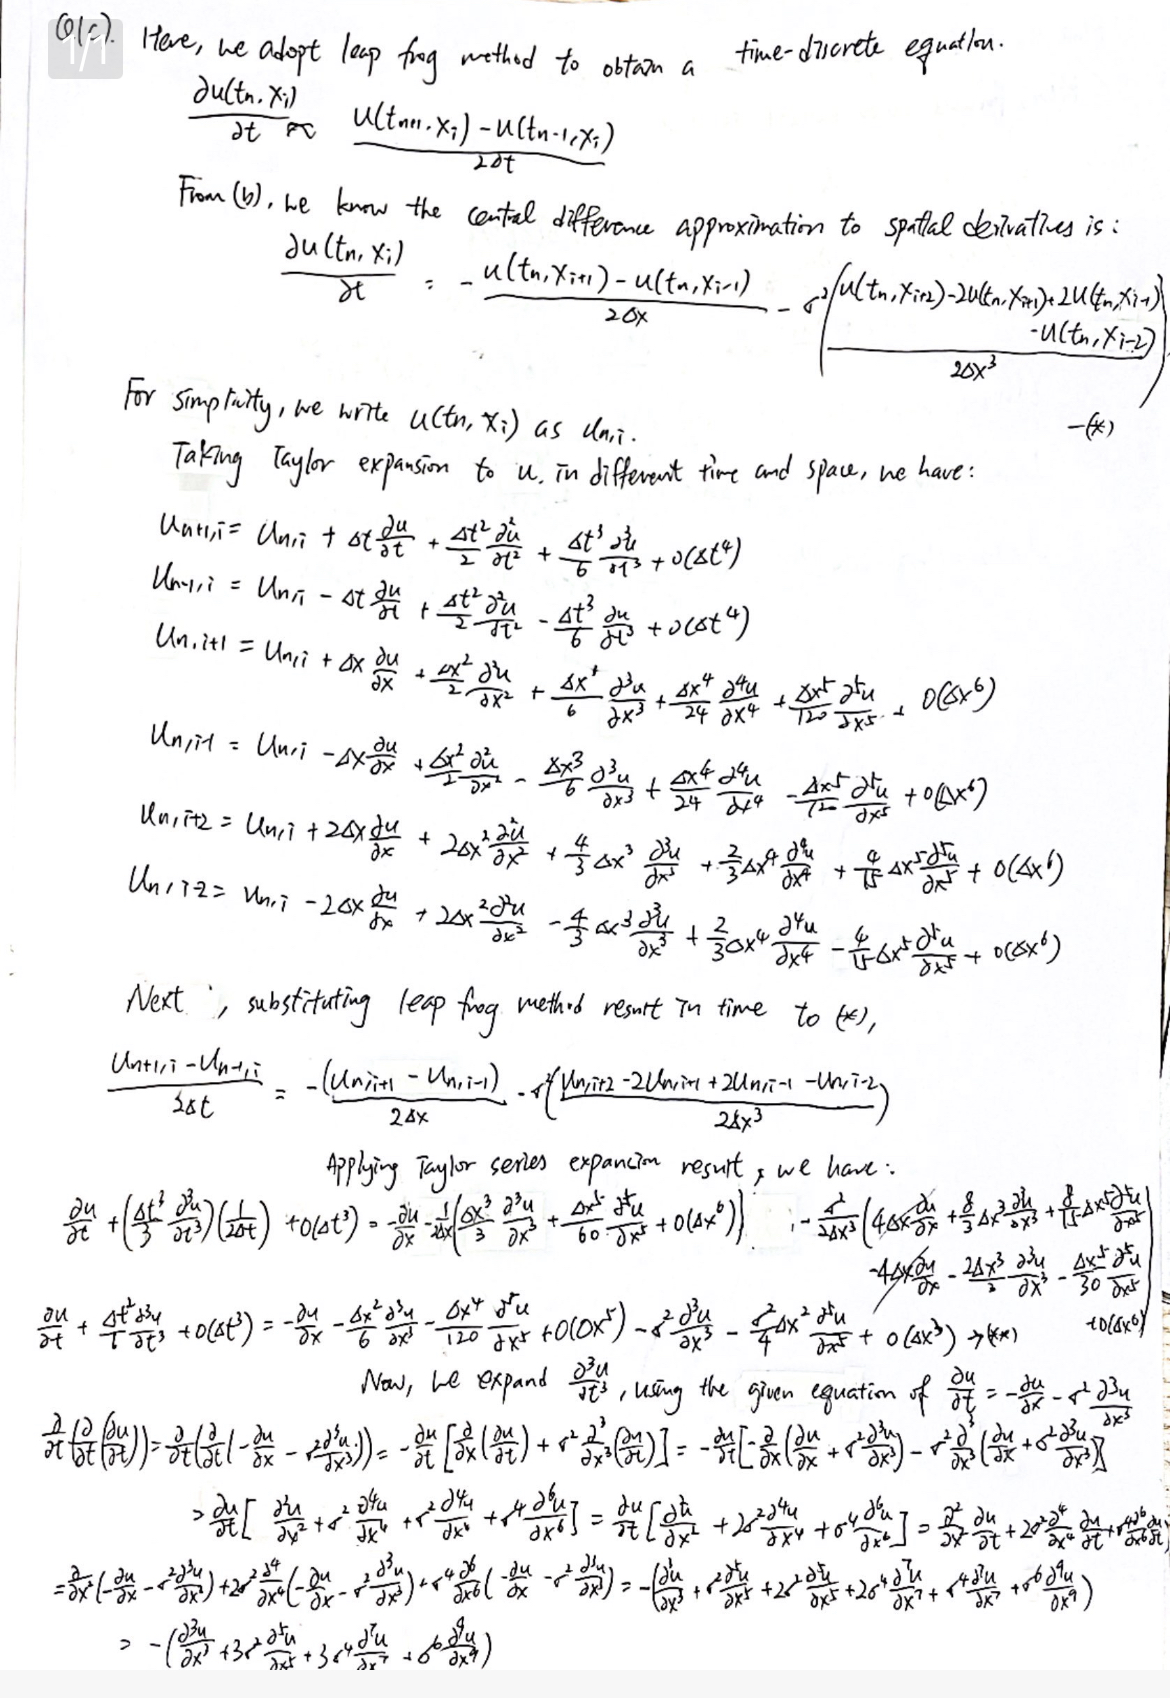 Q1(c). Here, we adopt leap frog method to obtain a time-discrete equation.
1/1
∂u(tn, xi)/∂t ≈ (u(tn+1, xi) - u(tn-1, xi))/2Δt
From (b), we know the central difference approximation to spatial derivatives is:
∂u(tn, xi)/∂t = - (u(tn, xi+1) - u(tn, xi-1))/2Δx - σ²((u(tn, xi+2) - 2u(tn, xi+1) + 2u(tn, xi-1) - u(tn, xi-2))/2Δx³)
-(*)
For simplicity, we write u(tn, xi) as un,i.
Taking Taylor expansion to u, in different time and space, we have:
Un+1,i = Un,i + Δt ∂u/∂t + Δt²/2 ∂²u/∂t² + Δt³/6 ∂³u/∂t³ + O(Δt⁴)
Un-1,i = Un,i - Δt ∂u/∂t + Δt²/2 ∂²u/∂t² - Δt³/6 ∂u/∂t³ + O(Δt⁴)
Un,i+1 = Un,i + Δx ∂u/∂x + Δx²/2 ∂²u/∂x² + Δx³/6 ∂³u/∂x³ + Δx⁴/24 ∂⁴u/∂x⁴ + Δx⁵/120 ∂⁵u/∂x⁵ + O(Δx⁶)
Un,i-1 = Un,i - Δx ∂u/∂x + Δx²/2 ∂²u/∂x² - Δx³/6 ∂³u/∂x³ + Δx⁴/24 ∂⁴u/∂x⁴ - Δx⁵/120 ∂⁵u/∂x⁵ + O(Δx⁶)
Un,i+2 = Un,i + 2Δx ∂u/∂x + 2Δx² ∂²u/∂x² + 4/3 Δx³ ∂³u/∂x³ + 2/3 Δx⁴ ∂⁴u/∂x⁴ + 4/15 Δx⁵ ∂⁵u/∂x⁵ + O(Δx⁶)
Un,i-2 = Un,i - 2Δx ∂u/∂x + 2Δx² ∂²u/∂x² - 4/3 Δx³ ∂³u/∂x³ + 2/3 Δx⁴ ∂⁴u/∂x⁴ - 4/15 Δx⁵ ∂⁵u/∂x⁵ + O(Δx⁶)
Next, substituting leap frog method result in time to (*),
(Un+1,i - Un-1,i)/2Δt = -(Un,i+1 - Un,i-1)/2Δx - σ²((Un,i+2 - 2Un,i+1 + 2Un,i-1 - Un,i-2)/2Δx³)
Applying Taylor series expansion result, we have:
∂u/∂t + (Δt³/3 ∂³u/∂t³)(1/2Δt) + O(Δt³) = -∂u/∂x - 1/2Δx(Δx³/3 ∂³u/∂x³ + Δx⁵/60 ∂⁵u/∂x⁵ + O(Δx⁶)) - σ²/2Δx³(4Δx ∂u/∂x + 8/3 Δx³ ∂³u/∂x³ + 8/15 Δx⁵ ∂⁵u/∂x⁵
-4Δx ∂u/∂x - 2Δx³/3 ∂³u/∂x³ - Δx⁵/30 ∂⁵u/∂x⁵
+O(Δx⁶))
∂u/∂t + Δt²/6 ∂³u/∂t³ + O(Δt³) = -∂u/∂x - Δx²/6 ∂³u/∂x³ - Δx⁴/120 ∂⁵u/∂x⁵ + O(Δx⁵) - σ² ∂³u/∂x³ - σ²/4 Δx² ∂⁵u/∂x⁵ + O(Δx³) → (**)
Now, we expand ∂³u/∂t³, using the given equation of ∂u/∂t = -∂u/∂x - σ² ∂³u/∂x³
∂/∂t(∂/∂t(∂u/∂t)) = ∂/∂t(∂/∂t(-∂u/∂x - σ² ∂³u/∂x³)) = -∂u/∂t[∂/∂x(∂u/∂t) + σ² ∂³/∂x³(∂u/∂t)] = -∂u/∂t[-∂/∂x(∂u/∂x + σ² ∂³u/∂x³) - σ² ∂³/∂x³(∂u/∂x + σ² ∂³u/∂x³)]
= ∂u/∂t[∂²u/∂x² + σ² ∂⁴u/∂x⁴ + σ² ∂⁴u/∂x⁴ + σ⁴ ∂⁶u/∂x⁶] = ∂u/∂t[∂²u/∂x² + 2σ² ∂⁴u/∂x⁴ + σ⁴ ∂⁶u/∂x⁶] = ∂²/∂x² ∂u/∂t + 2σ² ∂⁴/∂x⁴ ∂u/∂t + σ⁴ ∂⁶/∂x⁶ ∂u/∂t
= ∂²/∂x²(-∂u/∂x - σ² ∂³u/∂x³) + 2σ² ∂⁴/∂x⁴(-∂u/∂x - σ² ∂³u/∂x³) + σ⁴ ∂⁶/∂x⁶(-∂u/∂x - σ² ∂³u/∂x³) = -(∂³u/∂x³ + σ² ∂⁵u/∂x⁵ + 2σ² ∂⁵u/∂x⁵ + 2σ⁴ ∂⁷u/∂x⁷ + σ⁴ ∂⁷u/∂x⁷ + σ⁶ ∂⁹u/∂x⁹)
= -(∂³u/∂x³ + 3σ² ∂⁵u/∂x⁵ + 3σ⁴ ∂⁷u/∂x⁷ + σ⁶ ∂⁹u/∂x⁹)